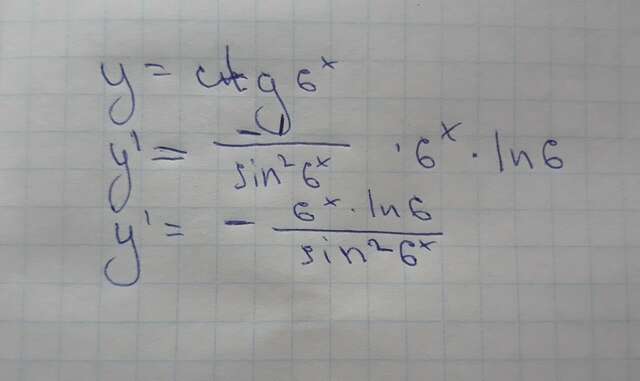 y = ctg 6^x
y' = -1/sin² 6^x · 6^x · ln 6
y' = - 6^x · ln 6/sin² 6^x